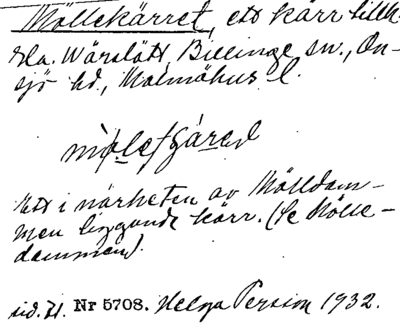 Möllekärret, ett kärr tillh.
Wäraslätt, Billinge sn., On-
sjö hd., Malmöhus l.
Ett i närheten av Mölldam-
men liggande kärr. (Se Mölle-
dammen).
sid. 21. Nr 5708. Helga Persson 1932.